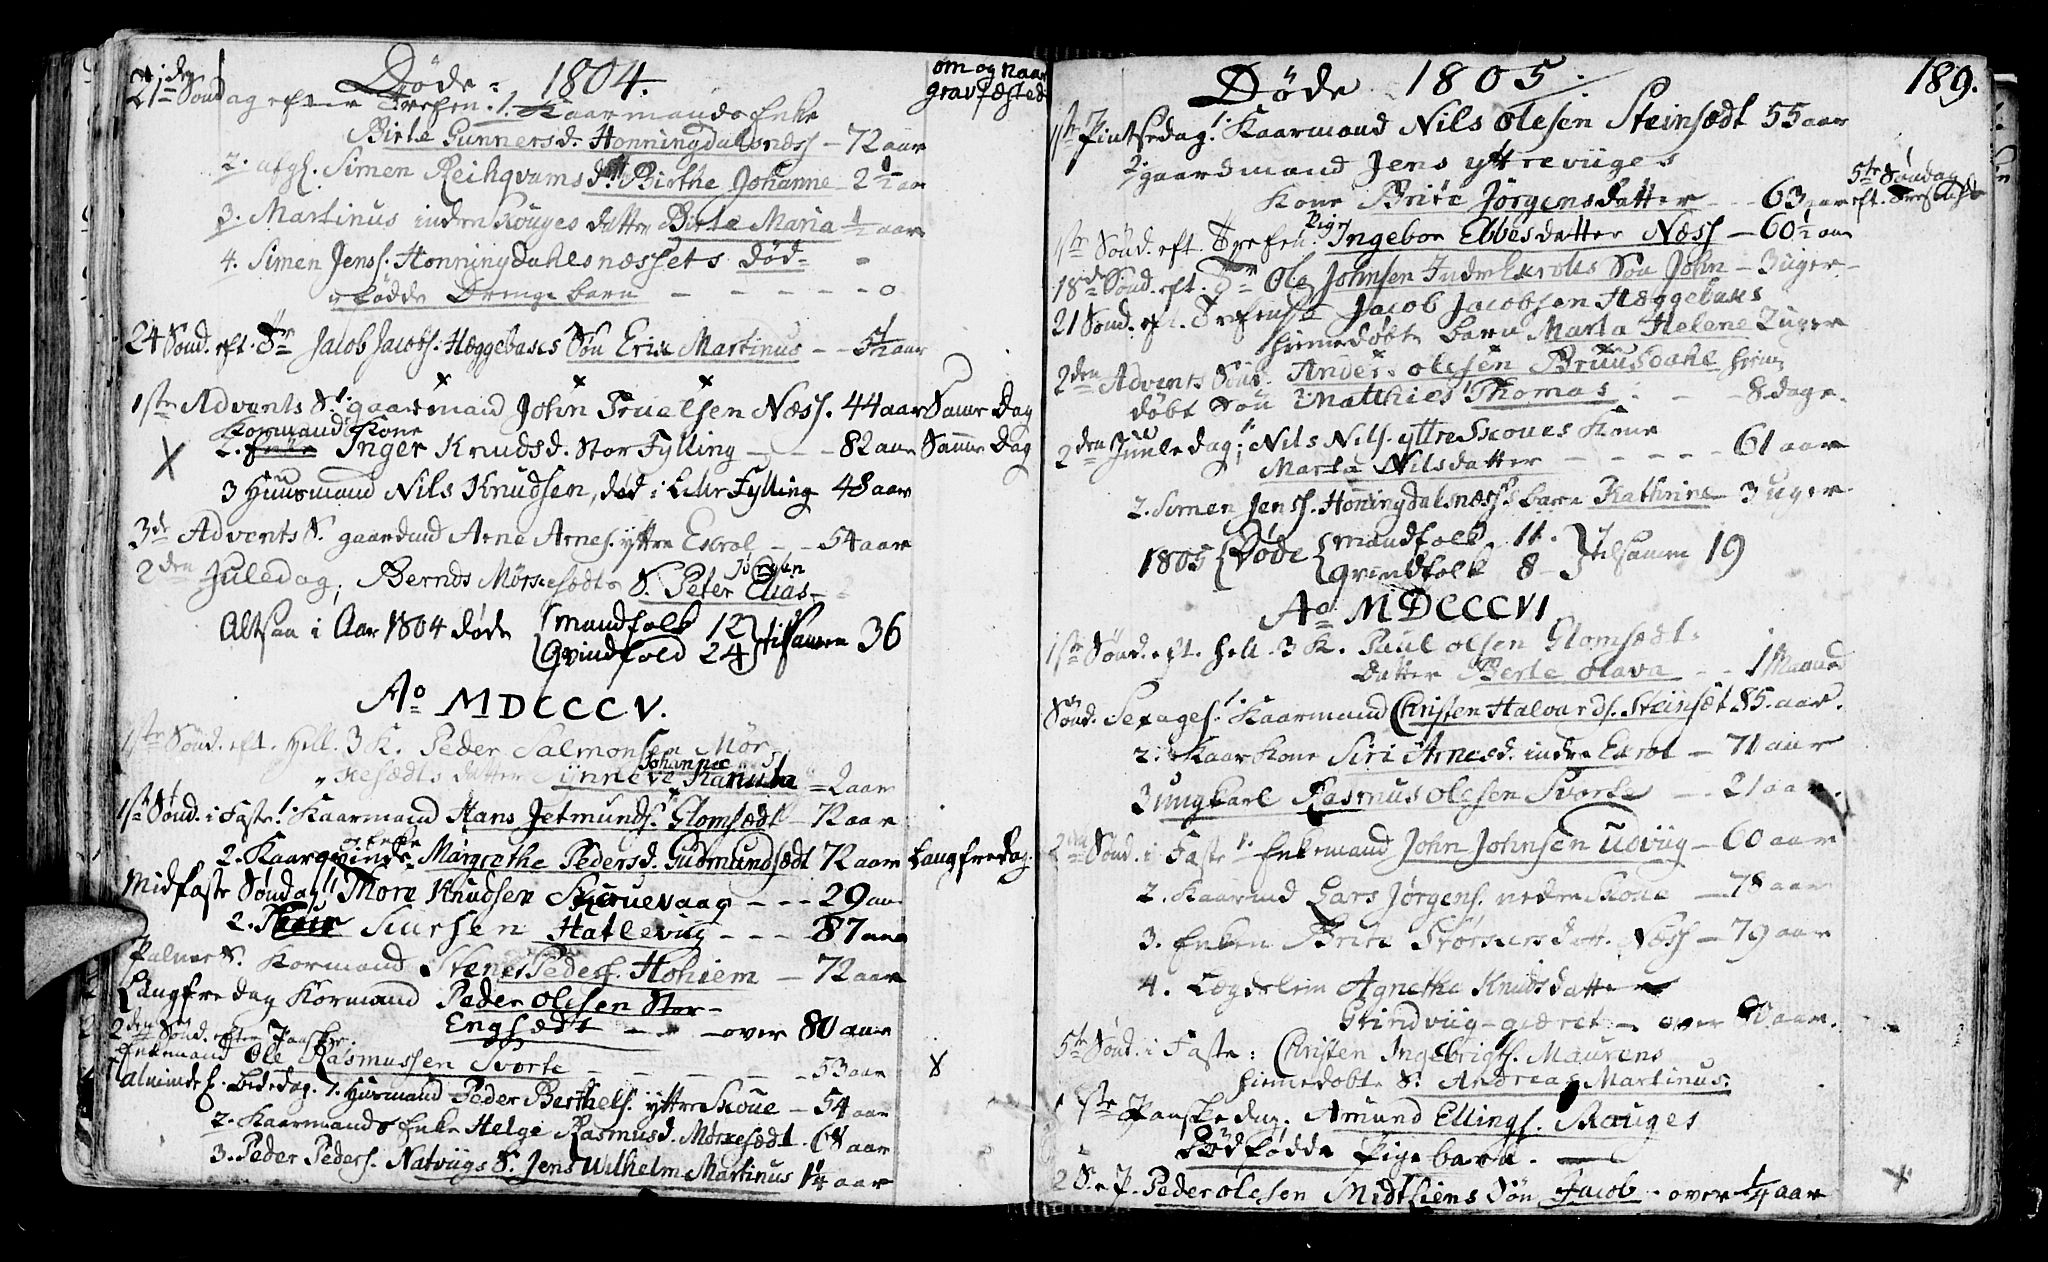 Døde 1804.
om og naar
gravfæsted
21de Søndag efter Trefen. 1. Kaarmands Enke
Birte Gunnersd. Honningdalsnæss - 72 aar
2. afgl. Simen Reihqvams dtt Birthe Johanne - 2 1/2 aar
3. Martinus indre Skouges datter Birte Maria 1/2 aar
4. Simen Jenss. Honningdahlsnæssets død-
fødde Drenge barn - - - - - 0
24 Sønd. eft. Tr. Jacob Jacobs. Hæggebaks Søn Erik Martinus - - 5 1/2 aar
1ste Advents S. 1. gaardmand John Truelsen Næss. 44 aar Samme Dag
Kormands Kone
2. Inger Knudsd. Stor Fylling - - - 82 aar Samme Dag
3 Huusmand Nils Knudsen, død i Lille Fylling 48 aar
3de Advents S. gaardmd Arne Arnes. yttre Exrol - - 54 aar
2den Juledag, Bernds Mørkesædts S. Peter Jørgen Elias -
Altsaa i Aar 1804 døde {mandfolk 12 } tilsamen 36
{Qvindfolk 24
Ao MDCCCV.
1ste Sønd. eft. Hell. 3 K. Peder Salmonsen Mør-
kesædts datter Synneve Johanne Hanna - 2 aar
1ste Sønd. i Faste 1. Kaarmand Hans Jetmunds. Glomsædt - 72 aar
2. Kaarqvinde o. Enke Margrethe Pedersd. Gudmundsædt 72 aar Langfredag.
Midfaste Søndag 1. Mons Knudsen Skruevaag - - - 29 aar
2. Siursen Hatleviig - - - 87 aar
Palme S. Kormand Stener Peders. Hohiem - 72 aar
Langfredag Kormand Peder Olesen Stor-
Engsædt - - - over 80 aar
2den Sønd. efter Paaske.
Enkemand Ole Rasmussen Svorte - - - - - 53 aar
Almindel. Bededag. 1. Husmand Peder Berthels. yttre Skoue - 54 aar
2. Kaarmands Enke Helge Rasmusd. Mørkesædt. 68 aar
3. Peder Peders. Natviigs S. Jens Wilhelm Martinus 1 1/4 aar
Døde 1805.
189.
1ste Pintsedag 1. Kaarmand Nils Olesen Steinsædt 55 aar
2. gaardmand Jens yttreviiges
Kone Brite Jørgensdatter - - 63 aar 5te Søndag eft. Trefoldh.
1ste Sønd. eft. Trefen. Pige Ingebor Ebbesdatter Næss - 60 1/2 aar
18de Sønd. eft. Tr. Ole Johnsen Indre Exrols Søn John - 3 uger -
21 Sønd. eft. Trefens. Jacob Jacobsen Hæggebaks
hiemedøbte barn Marta Helene 2 uger
2den Advents Sønd. Anders Olesen Bruusdahl hiem
døbt Søn Matthies Thomas - - 8 dage.
2den Juuledag; 1. Nils Nils. yttre Skoues Kone
Marta Nilsdatter - - - - - 61 aar
2. Simen Jenss. Honingdalsnæss. barn Kathrine - 3 uger
1805 {Døde {mandfolk 11. } tilsamen 19
{Qvindfolk 8
Ao MDCCCVI
1ste Sønd. eft. Hell. 3 K. Paul Olsen Glomsædt.
datter Berte Olava - - 1 Maaned
Sønd. Sexages. 1. Kaarmand Christen Halvards. Steinsæt 85. aar.
2. Kaar Kone Siri Arnesd. indre Exrol - 71 aar
3 ungkarl Rasmus Olesen Svorte - - 21 aar.
2den Sønd. i Faste 1. Enkemand John Johnsen Udviig - 60 aar
2. Kaarmd Lars Jørgens. nedre Skoue - 78 aar
3. Enken Brite Næss - 79 aar
4. Lægdelem Agnethe Knudsdatter
Strindviig-gieret - over 80 aar.
5te Sønd. i Faste: Christen Ingebrigts. Maurens
hiemedøbte S. Andreas Martinus.
1ste Paaskedag, Amund Ellings. Skouges
Dødfødde Pigebarn. -
2 S. e. P. Peder Olesen Midtliens Søn Jacob - over 1/4 aar